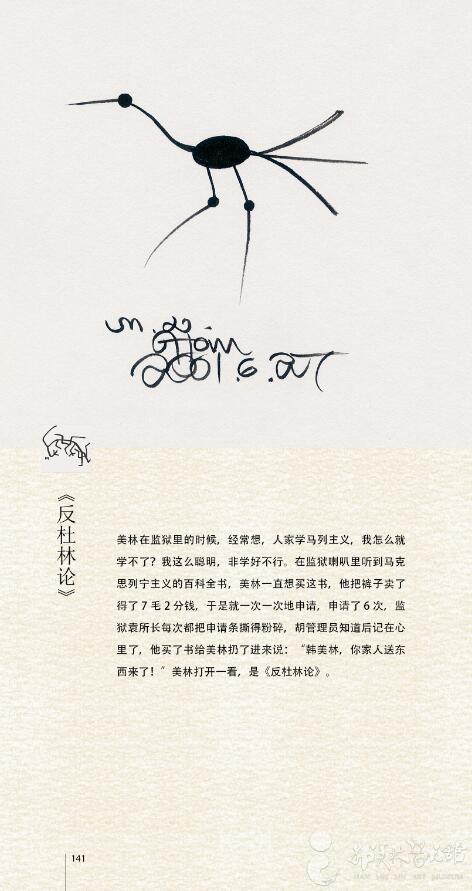 2001.6.27
《反杜林论》
美林在监狱里的时候，经常想，人家学马列主义，我怎么就
学不了？我这么聪明，非学好不行。在监狱喇叭里听到马克
思列宁主义的百科全书，美林一直想买这书，他把裤子卖了
得了7毛2分钱，于是就一次一次地申请，申请了6次，监
狱袁所长每次都把申请条撕得粉碎，胡管理员知道后记在心
里了，他买了书给美林扔了进来说：“韩美林，你家人送东
西来了！”美林打开一看，是《反杜林论》。
141
HAN MEI LIN ART MUSEUM